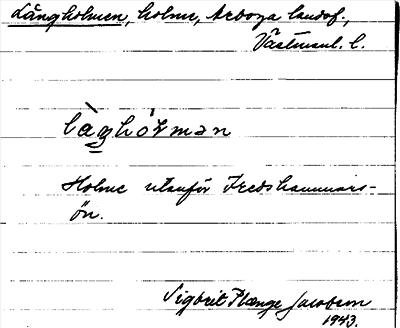 Långholmen, holme, Arboga landsf.,
Västmanl. l.
làghólmən
Holme utanför Fredshammars-
ön.
Sigbrit Plænge Jacobson
1943.